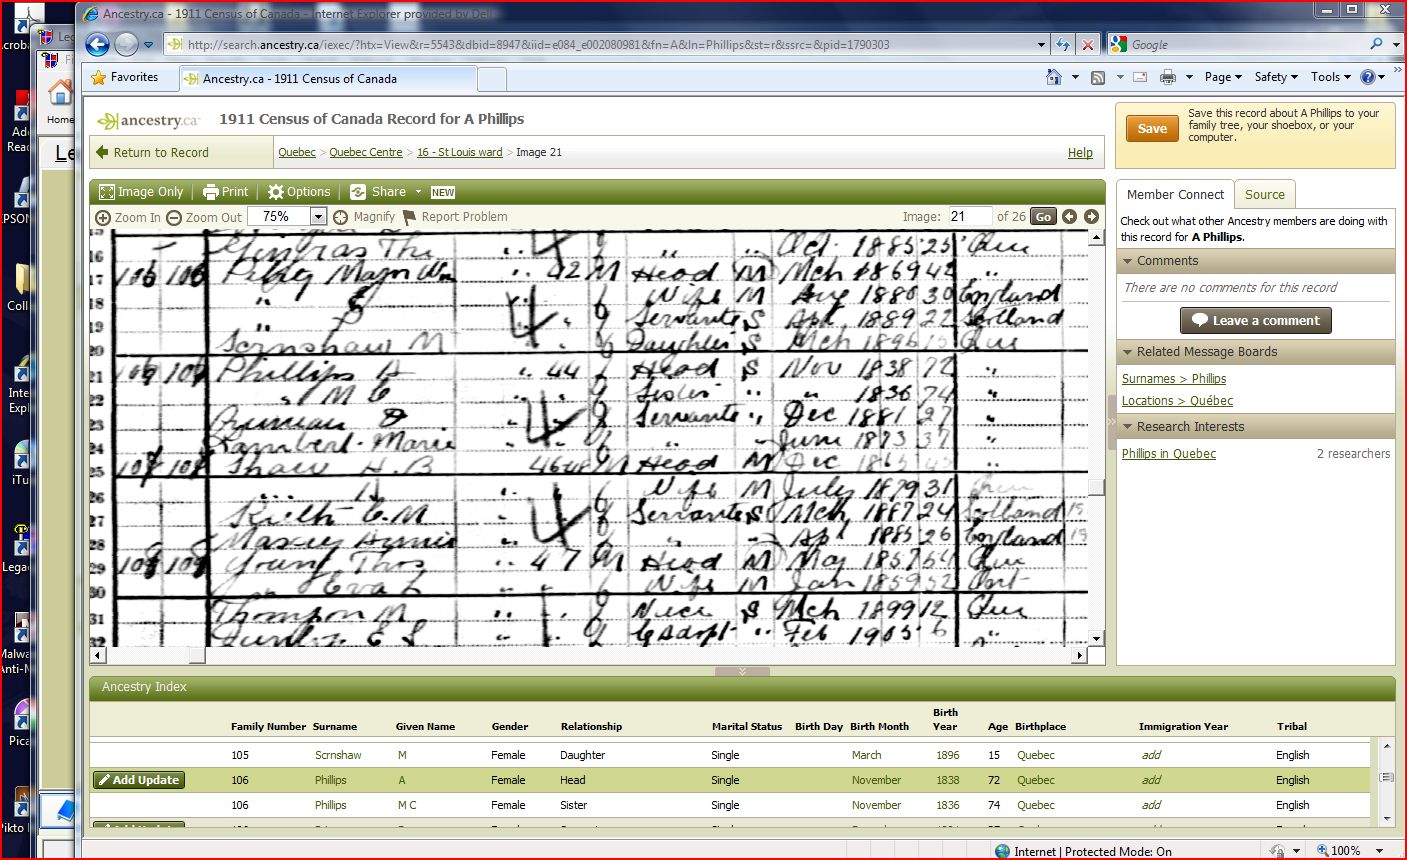 Ancestry.ca - 1911 Census of Canada - Internet Explorer provided by Dell
http://search.ancestry.ca/iexec/?htx=View&r=5543&dbid=8947&iid=e084_e002080981&fn=A&ln=Phillips&st=r&ssrc=&pid=1790303
Google
Favorites
Ancestry.ca - 1911 Census of Canada
Page Safety Tools
Home
ancestry.ca 1911 Census of Canada Record for A Phillips
Save
Save this record about A Phillips to your
family tree, your shoebox, or your
computer.
Return to Record
Quebec > Quebec Centre > 16 - St Louis ward > Image 21
Help
Image Only Print Options Share NEW
Zoom In Zoom Out 75% Magnify Report Problem Image: 21 of 26 Go
Member Connect Source
Check out what other Ancestry members are doing with
this record for A Phillips.
Comments
There are no comments for this record
Leave a comment
Related Message Boards
Surnames > Phillips
Locations > Québec
Research Interests
Phillips in Quebec 2 researchers
16 Gingras Oct 1885 25 Que
17 42 M Head M Mch 1869 42 "
18 " Wife M Aug 1880 30 England
19 " Servante S Apl 1889 22 Scotland
20 Scrnshaw M Daughter S Mch 1896 15 Que
21 Phillips A 44 f Head S Nov 1838 72 "
22 " M C Sister " " 1836 74 "
23 Servante " Dec 1881 27 "
24 Lambert Marie " " June 1873 37 "
25 Shaw H.B M Head M Dec 1865 45 "
26 Wife M July 1879 31 Que
27 Servante S Mch 1887 24 Scotland
28 " " Apl 1885 26 England
29 Young Thos 47 M Head M May 1857 54 Que
30 " Eva L Wife M Jan 1859 52 Ont
31 Thompson M Niece S Mch 1899 12 Que
32 Adopt " Feb 1905 6 "
Ancestry Index
Family Number Surname Given Name Gender Relationship Marital Status Birth Day Birth Month Birth Year Age Birthplace Immigration Year Tribal
105 Scrnshaw M Female Daughter Single March 1896 15 Quebec add English
Add Update 106 Phillips A Female Head Single November 1838 72 Quebec add English
106 Phillips M C Female Sister Single November 1836 74 Quebec add English
Internet | Protected Mode: On 100%